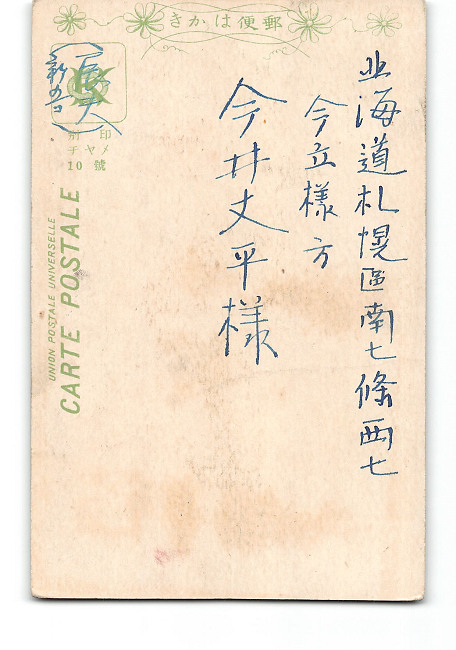 きかは便郵
北海道札幌區南七條西七
今立様方
今井丈平様
印
チヤメ
10 號
UNION POSTALE UNIVERSELLE
CARTE POSTALE